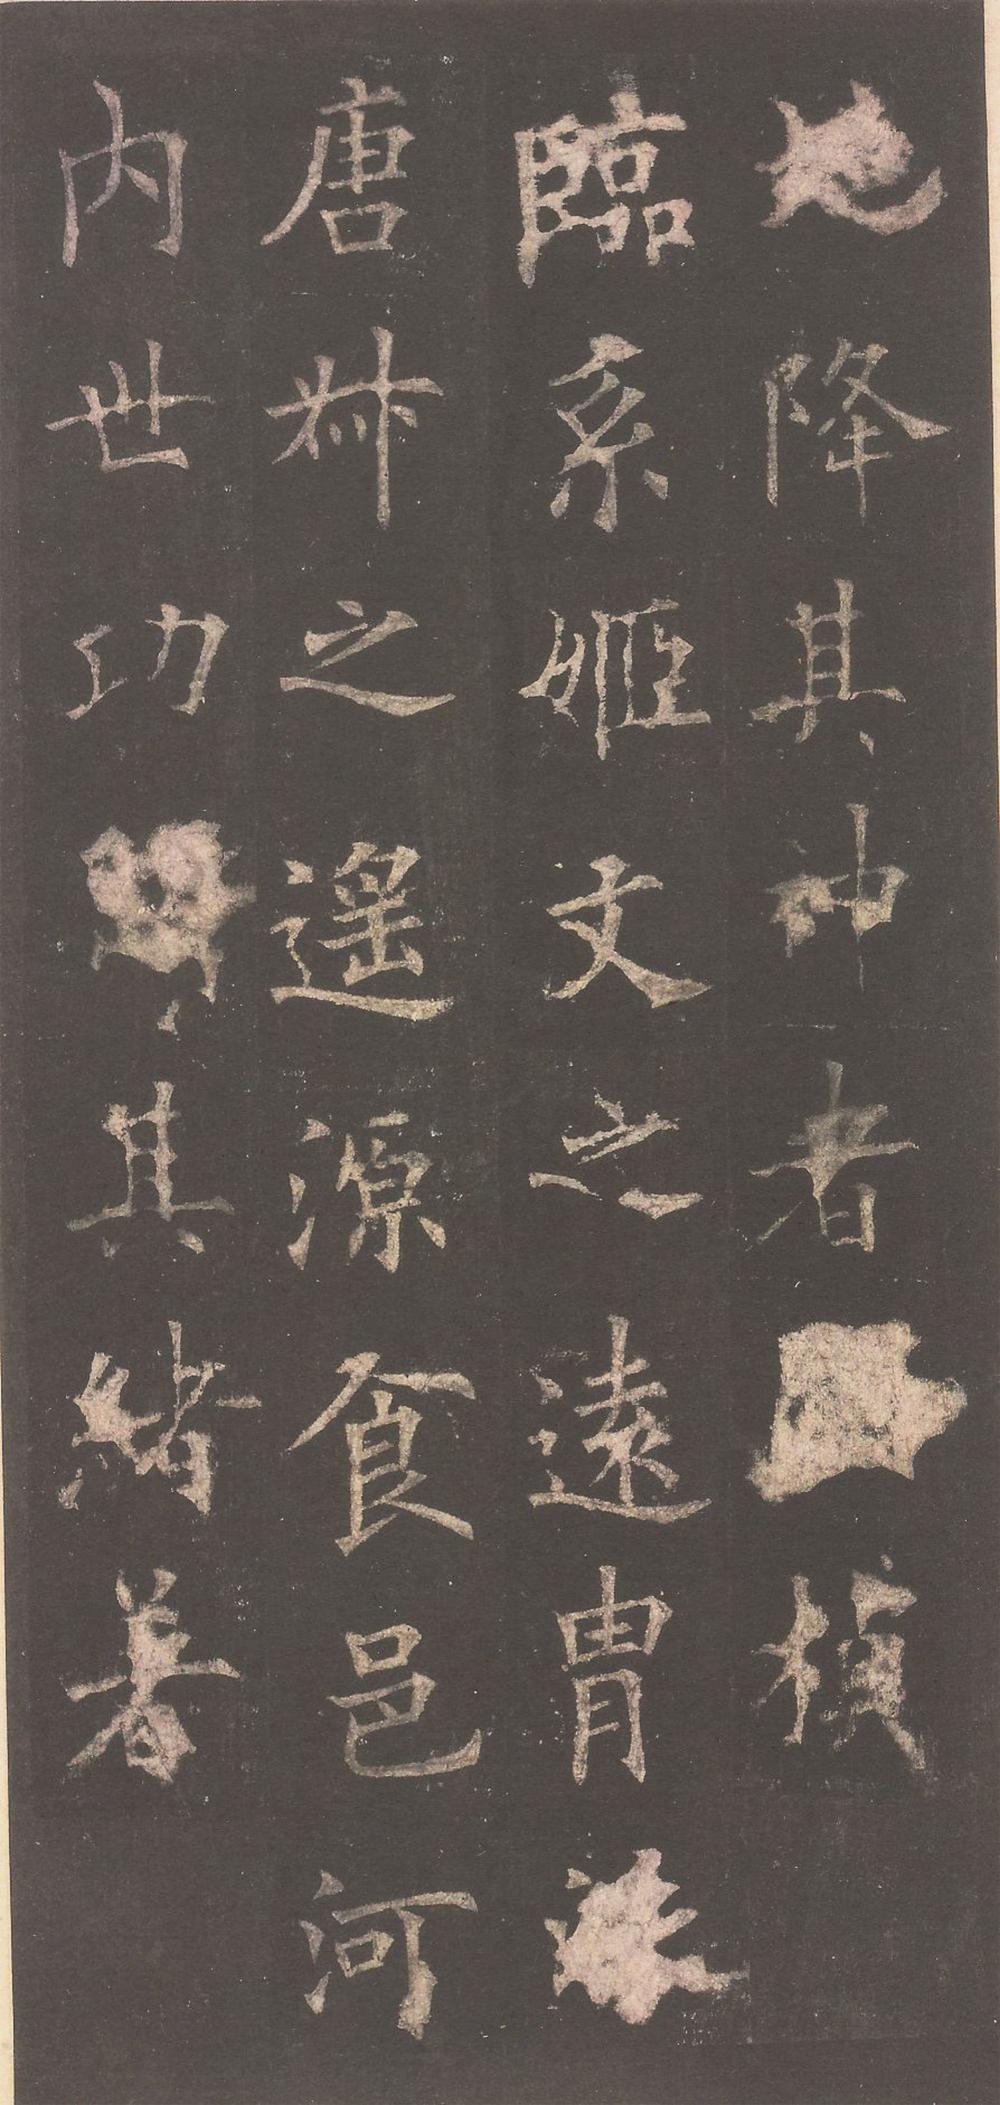 地降其神者□楨
臨系姬文之遠胄派
唐叔之遥源食邑河
内世功□其緒著